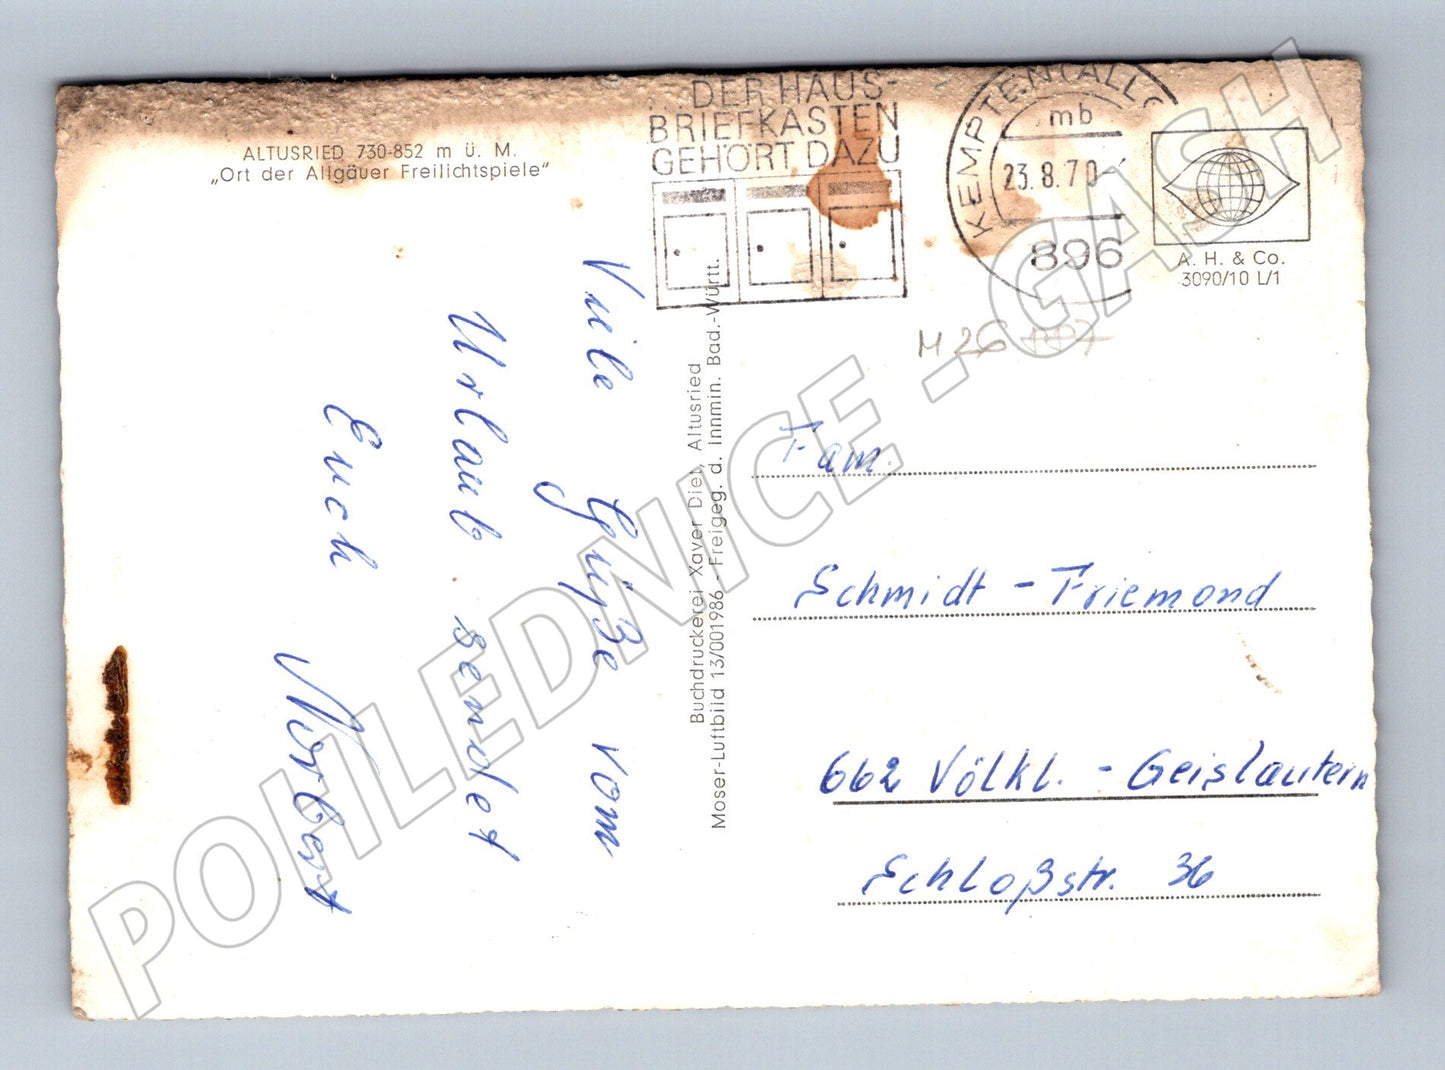 ALTUSRIED 730-852 m ü. M.
„Ort der Allgäuer Freilichtspiele"
DER HAUS-
BRIEFKASTEN
GEHÖRT DAZU
KEMPTEN (ALLG
mb
23.8.70
896
A. H. & Co.
3090/10 L/1
M 26
Viele Grüße vom
Urlaub sendet
Euch
Norbert
Buchdruckerei Xaver Diet, Altusried
Moser-Luftbild 13/001986 - Freigeg. d. Innmin. Bad.-Württ.
Fam.
Schmidt - Friemond
662 Völkl. - Geislautern
Schloßstr. 36
POHLEDNICE - GASH